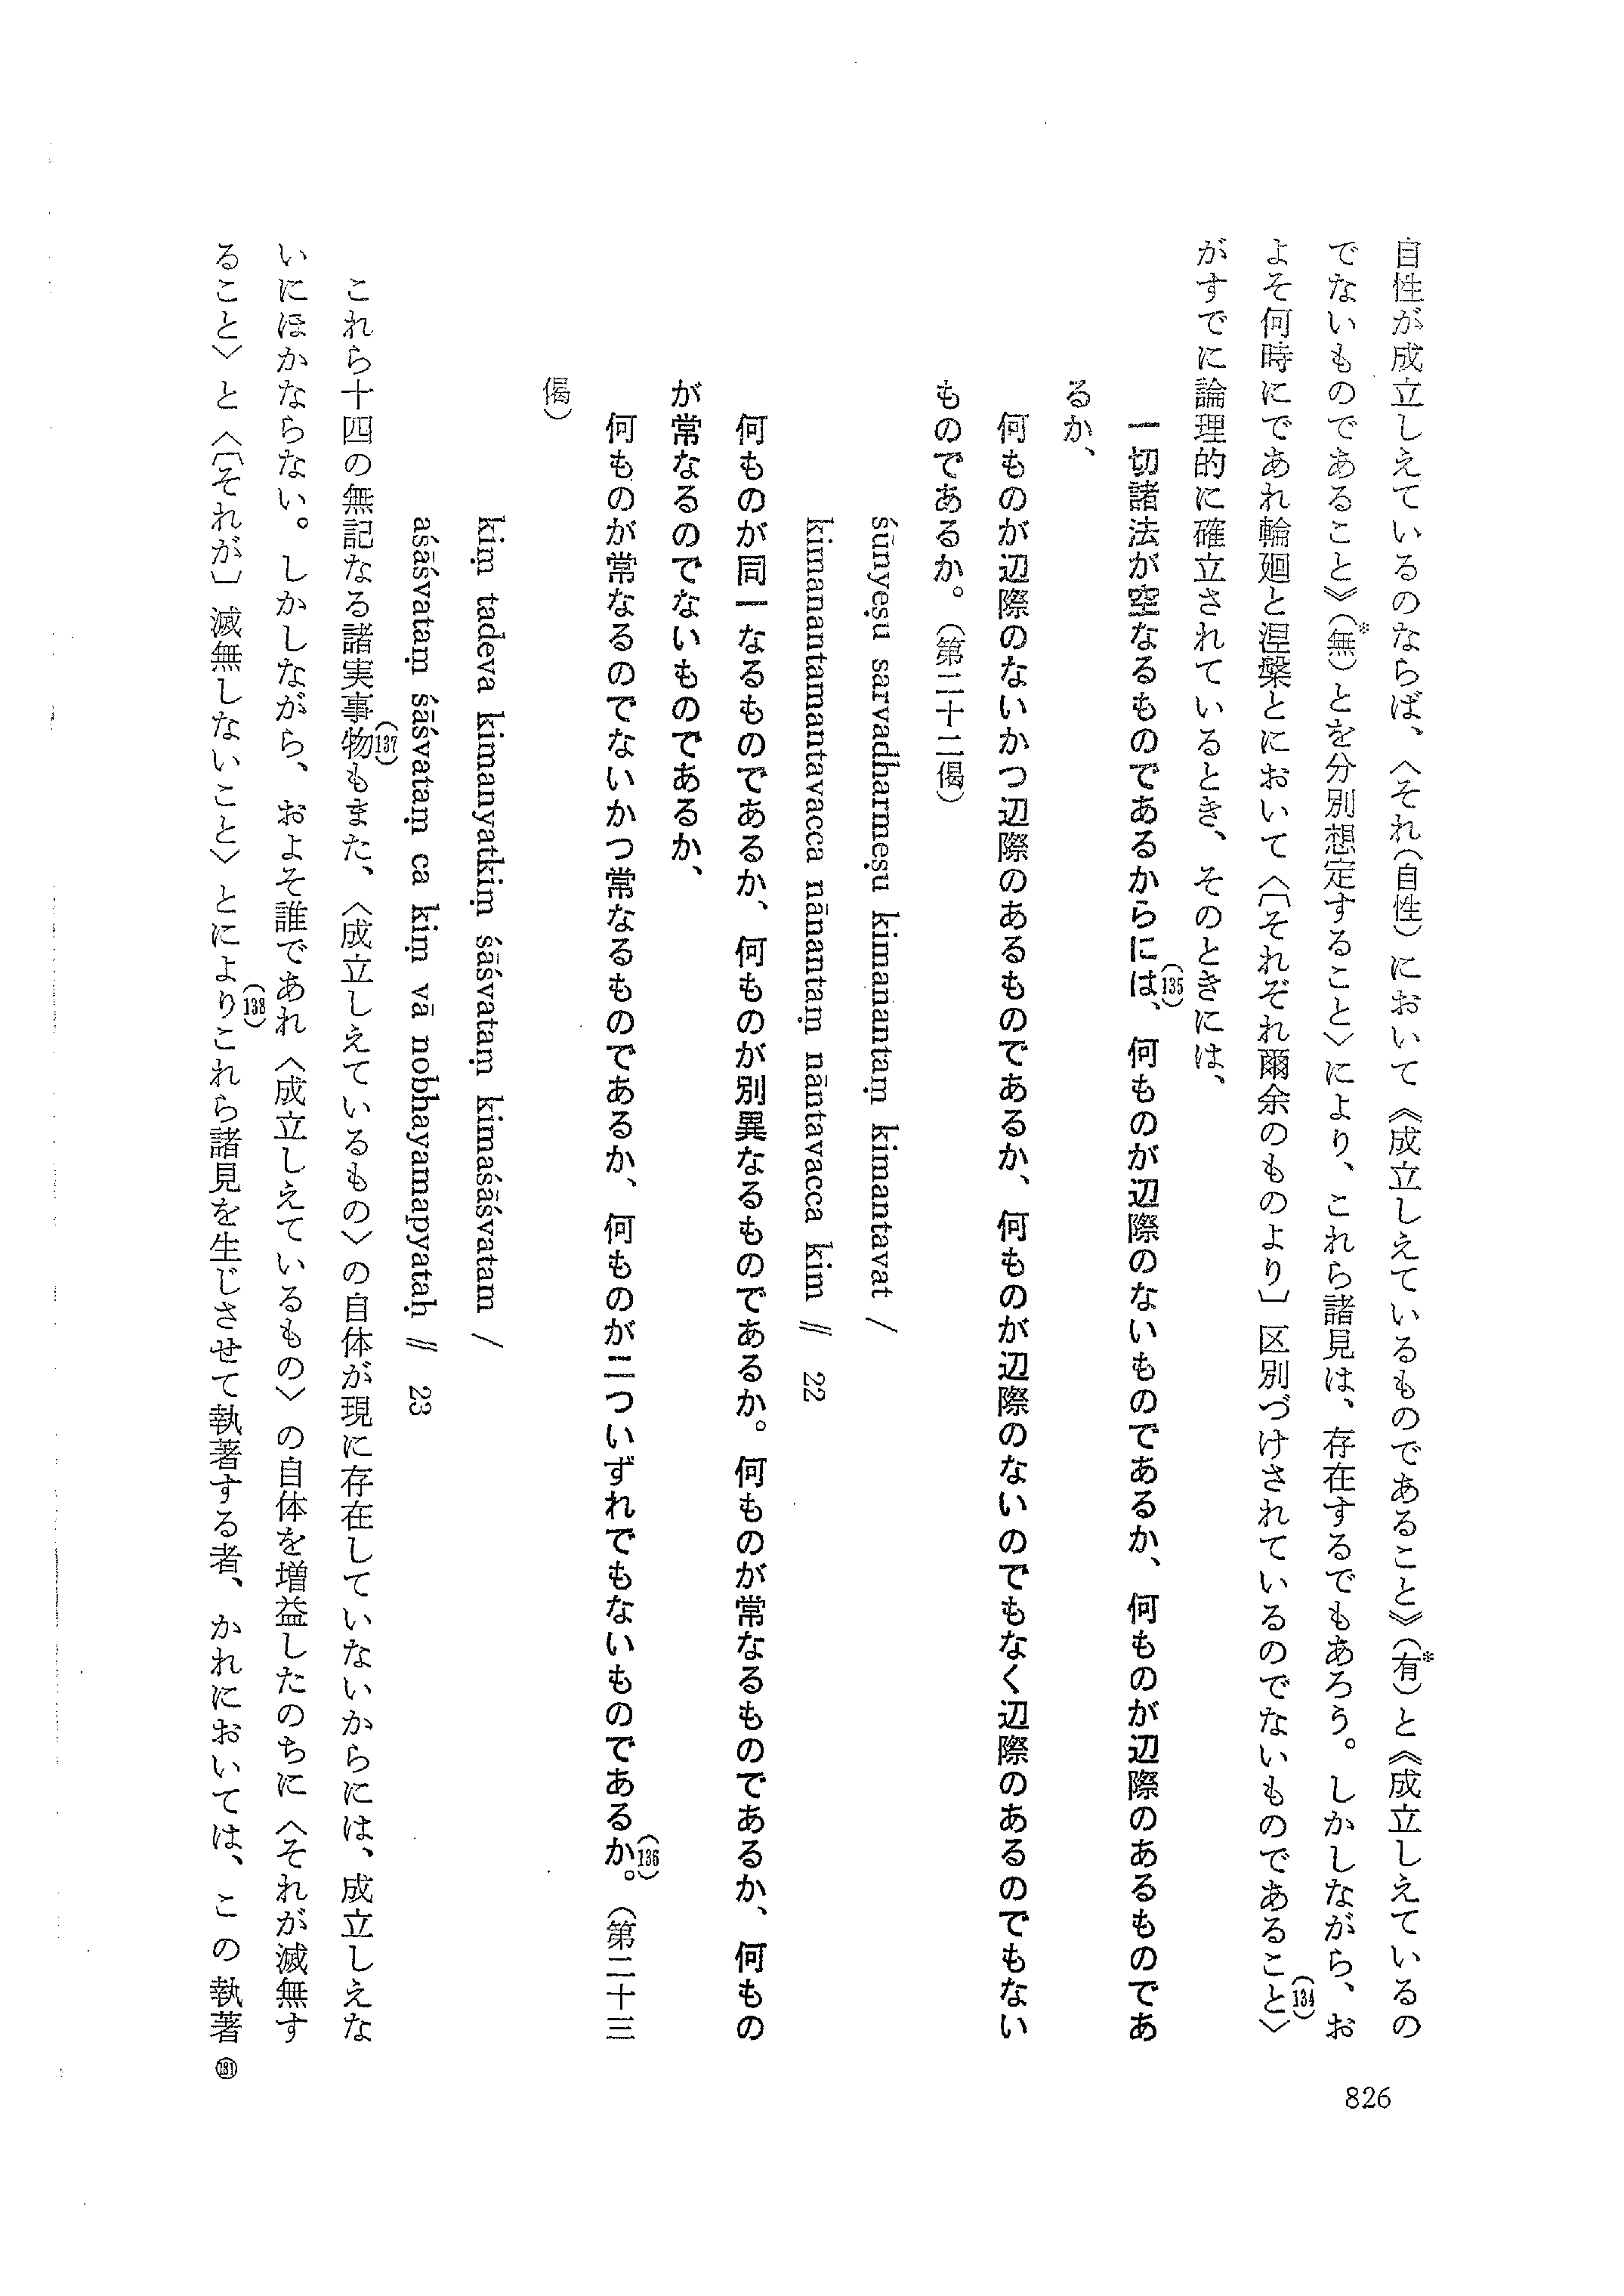 自性が成立しえているのならば、〈それ(自性)において《成立しえているものであること》(有*)と《成立しえているの
でないものであること》(無*)とを分別想定すること〉により、これら諸見は、存在するでもあろう。しかしながら、お
よそ何時にであれ輪廻と涅槃とにおいて〈〔それぞれ爾余のものより〕区別づけされているのでないものであること〉(134)
がすでに論理的に確立されているとき、そのときには、
一切諸法が空なるものであるからには(135)、何ものが辺際のないものであるか、何ものが辺際のあるものであ
るか、
何ものが辺際のないかつ辺際のあるものであるか、何ものが辺際のないのでもなく辺際のあるのでもない
ものであるか。(第二十二偈)
śūnyeṣu sarvadharmeṣu kimanantaṃ kimantavat /
kimanantamantavacca nānantaṃ nāntavacca kim // 22
何ものが同一なるものであるか、何ものが別異なるものであるか。何ものが常なるものであるか、何もの
が常なるのでないものであるか、
何ものが常なるのでないかつ常なるものであるか、何ものが二ついずれでもないものであるか。(136)(第二十三
偈)
kiṃ tadeva kimanyatkiṃ śāśvataṃ kimaśāśvatam /
aśāśvataṃ śāśvataṃ ca kiṃ vā nobhayamapyataḥ // 23
これら十四の無記なる諸実事物(137)もまた、〈成立しえているもの〉の自体が現に存在していないからには、成立しえな
いにほかならない。しかしながら、およそ誰であれ〈成立しえているもの〉の自体を増益したのちに〈それが滅無す
ること〉と〈〔それが〕滅無しないこと〉とにより(138)これら諸見を生じさせて執著する者、かれにおいては、この執著
(181)
826